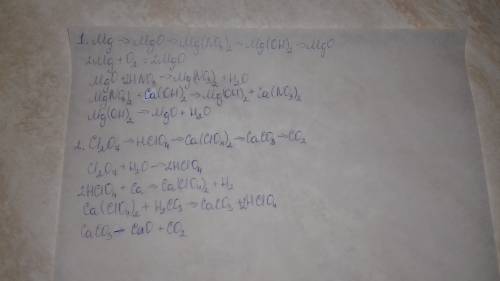 1. Mg → MgO → Mg(NO₃)₂ → Mg(OH)₂ → MgO
2Mg + O₂ = 2MgO
MgO + 2HNO₃ → Mg(NO₃)₂ + H₂O
Mg(NO₃)₂ + Ca(OH)₂ → Mg(OH)₂ + Ca(NO₃)₂
Mg(OH)₂ → MgO + H₂O
2. Cl₂O₄ → HClO₄ → Ca(ClO₄)₂ → CaCO₃ → CO₂
Cl₂O₄ + H₂O → 2HClO₄
2HClO₄ + Ca → Ca(ClO₄)₂ + H₂
Ca(ClO₄)₂ + H₂CO₃ → CaCO₃ + 2HClO₄
CaCO₃ → CaO + CO₂